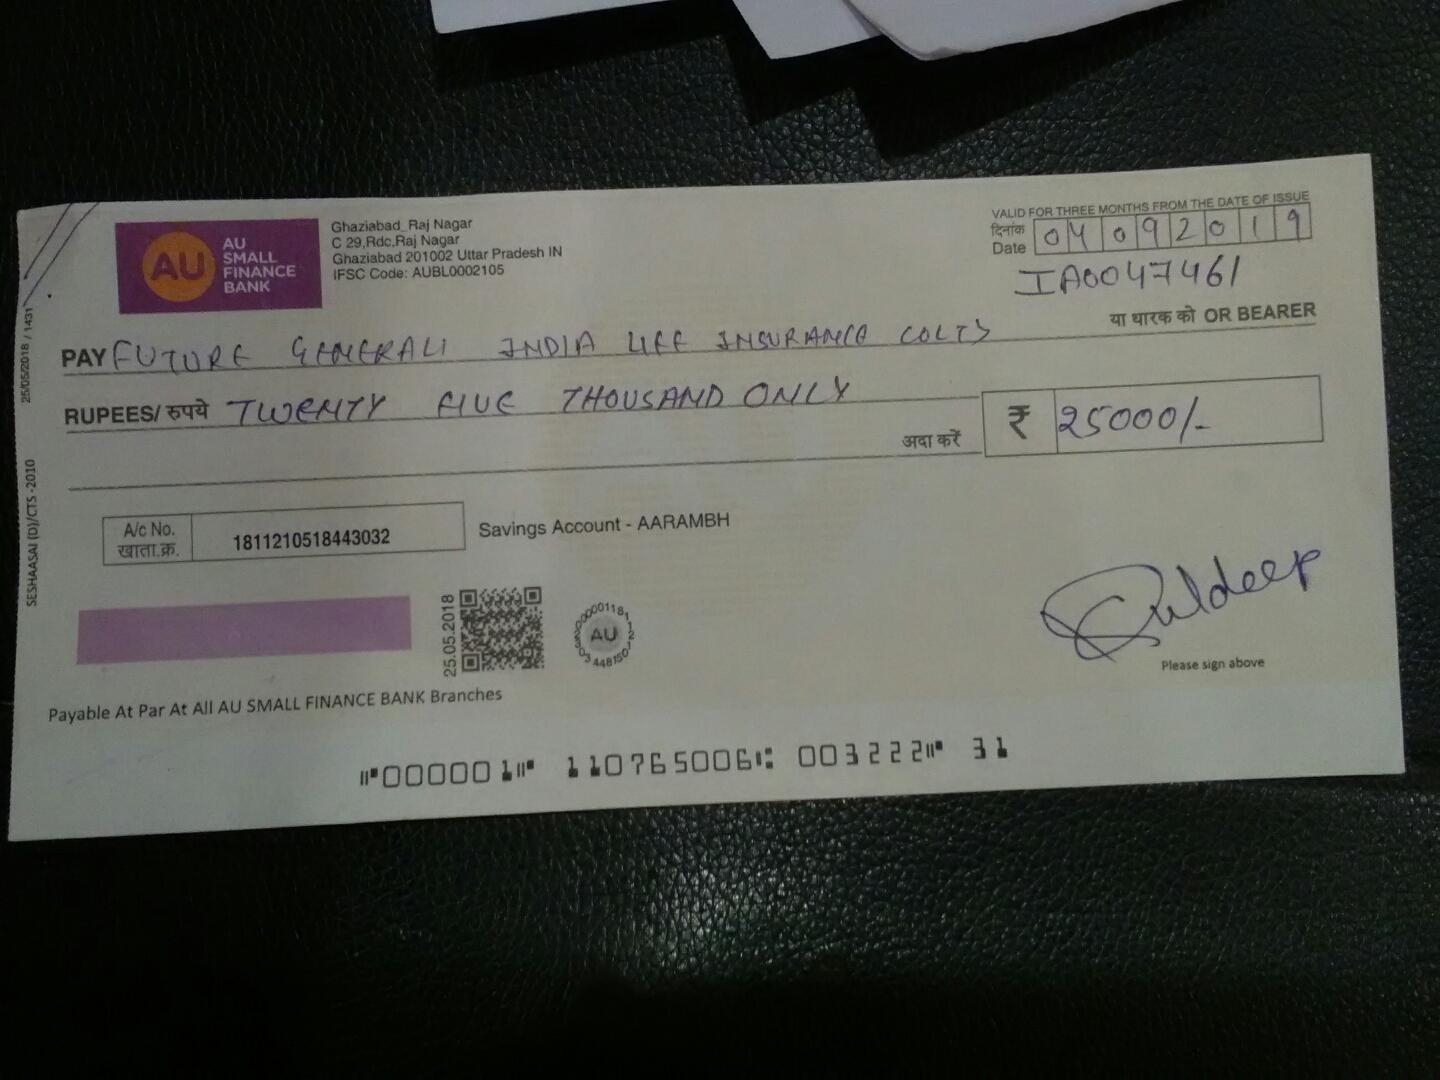 AU
AU
SMALL
FINANCE
BANK
Ghaziabad_Raj Nagar
C 29,Rdc,Raj Nagar
Ghaziabad 201002 Uttar Pradesh IN
IFSC Code: AUBL0002105
VALID FOR THREE MONTHS FROM THE DATE OF ISSUE
दिनांक
Date 04092019
IA0047461
या धारक को OR BEARER
PAY FUTURE GENERALI INDIA LIFE INSURANCE COLTD
RUPEES/ रुपये TWENTY FIVE THOUSAND ONLY
अदा करें
₹ 25000/-
A/c No.
खाता.क्र.
1811210518443032
Savings Account - AARAMBH
25/05/2018 / 1431
SESHAASAI (D)/CTS -2010
25.05.2018
AU
Kuldeep
Please sign above
Payable At Par At All AU SMALL FINANCE BANK Branches
⑈000001⑈ 110765006⑆ 003222⑈ 31